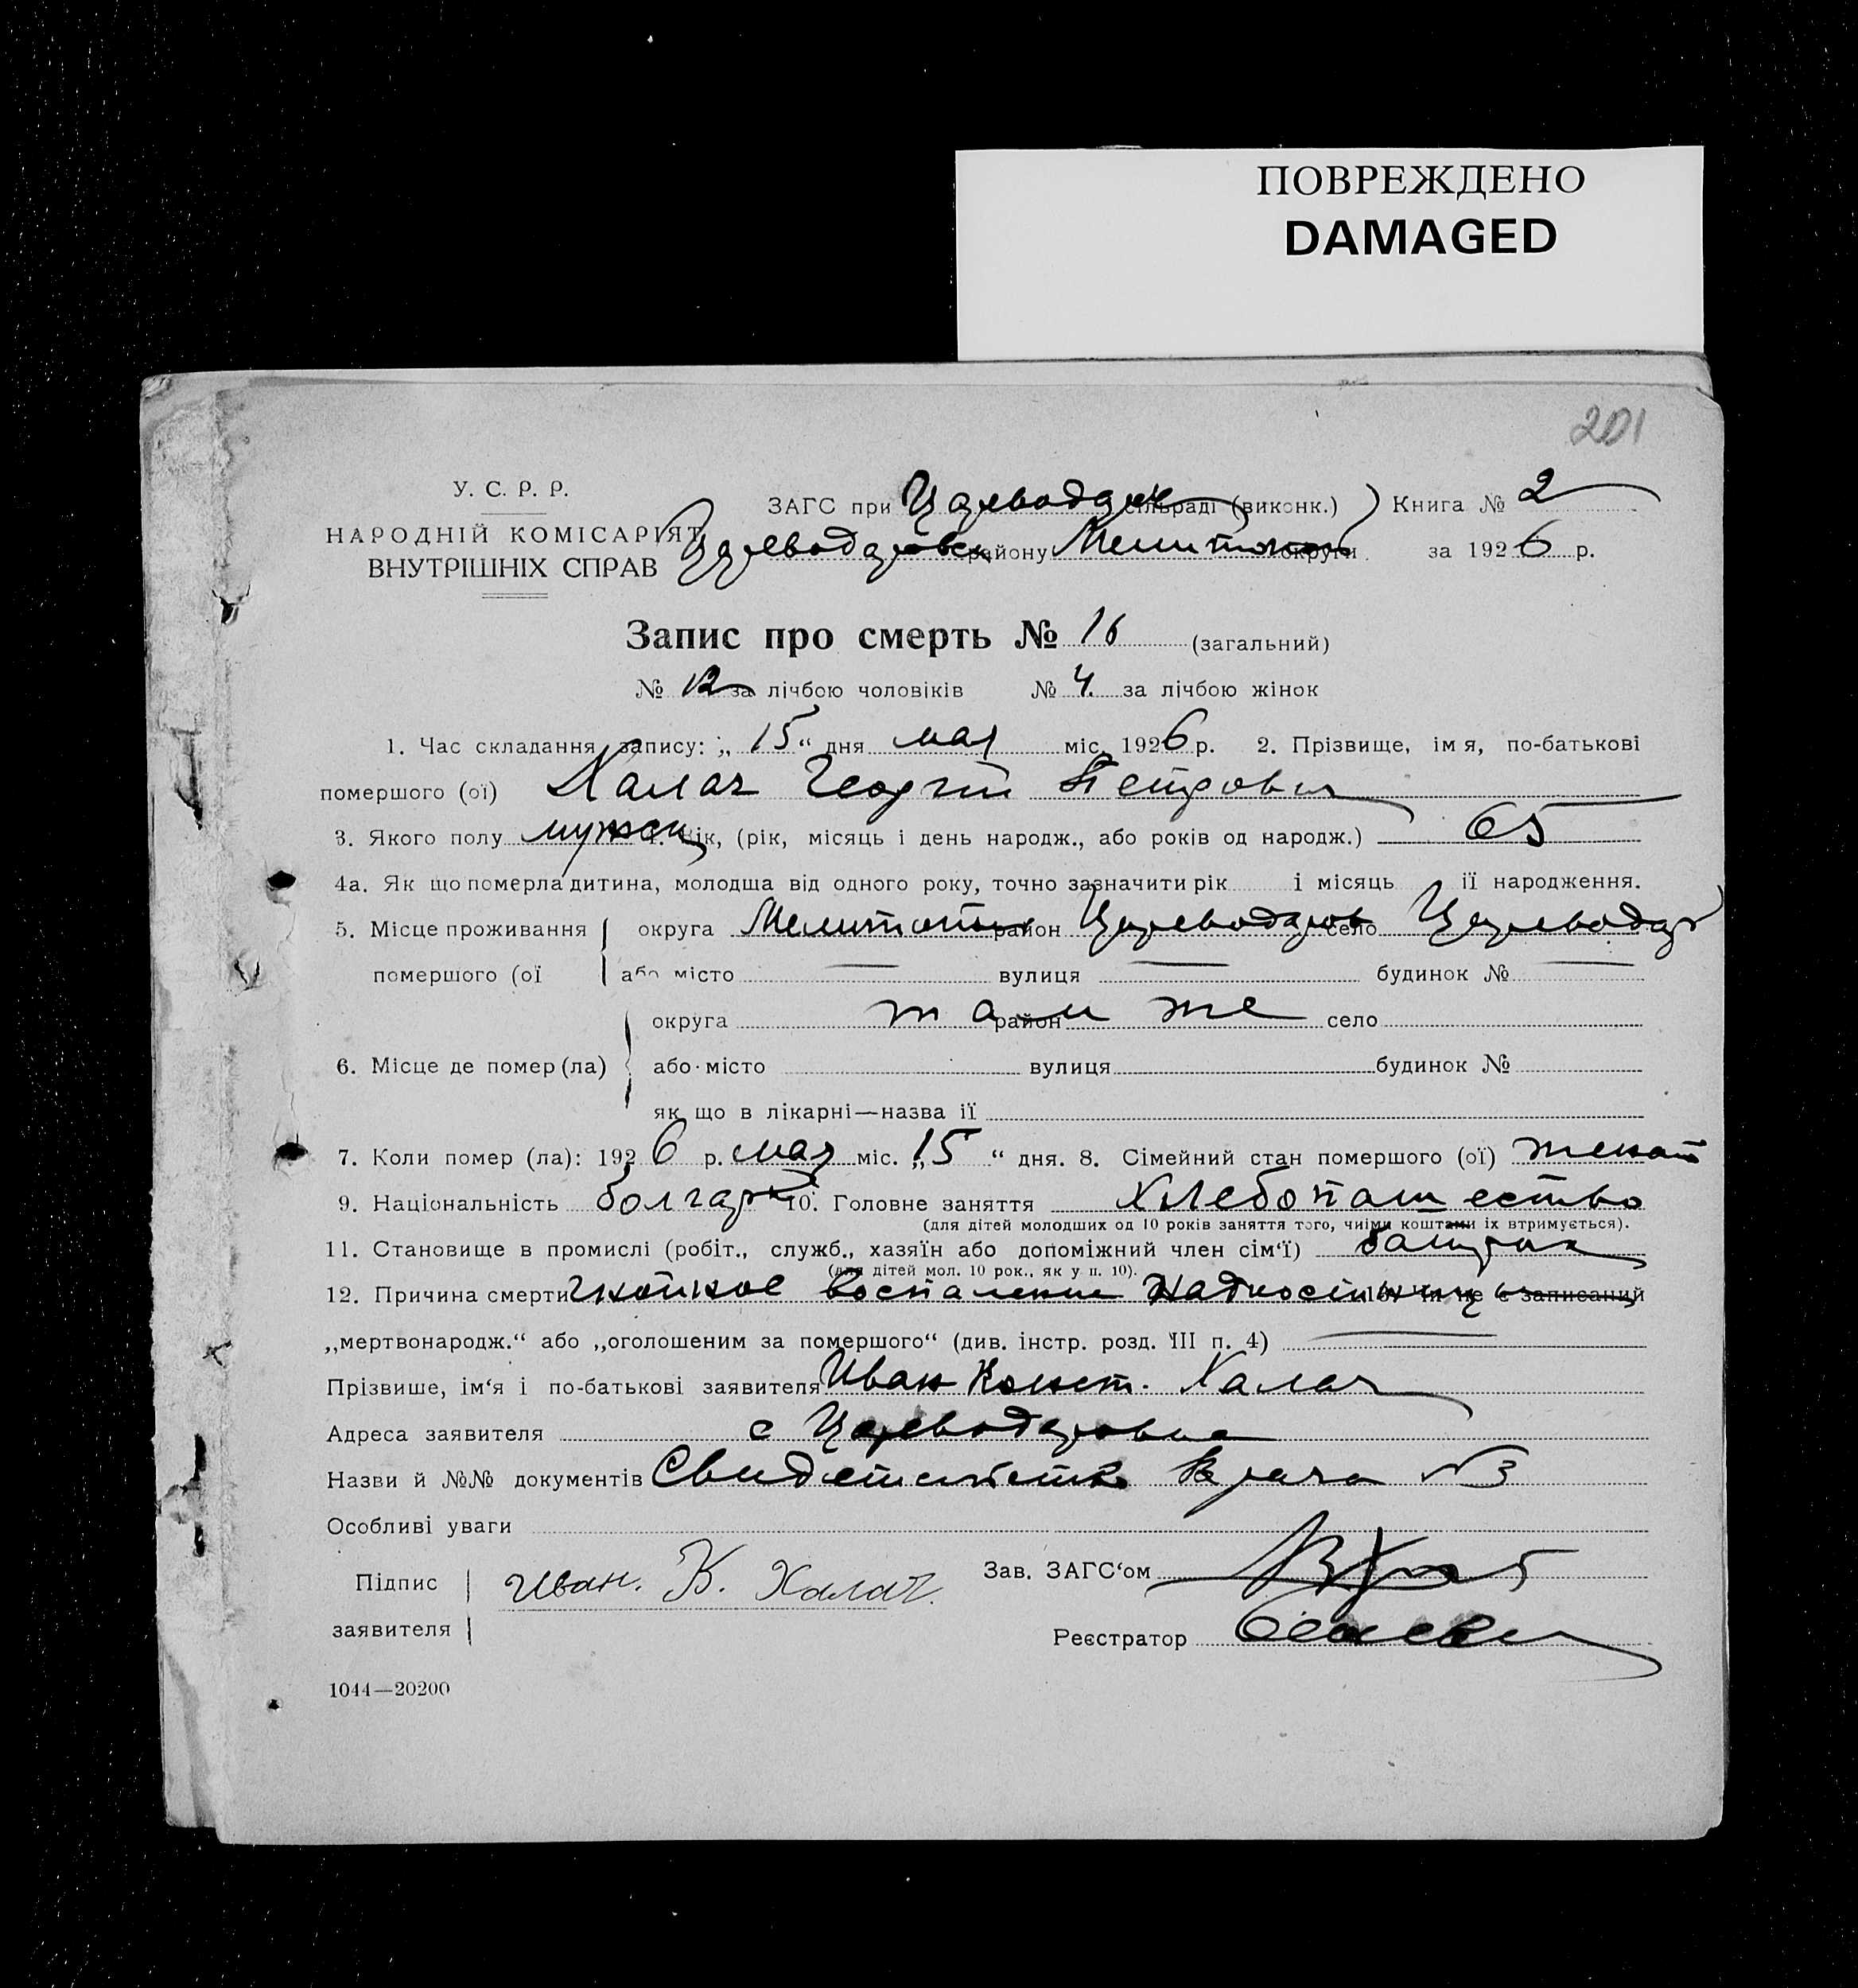 ПОВРЕЖДЕНО
DAMAGED
201
У. С. Р. Р.
НАРОДНІЙ КОМІСАРІЯТ
ВНУТРІШНІХ СПРАВ
ЗАГС при Царевода сільраді (виконк.) Книга № 2
Цареводаровск району Мелитоп округи за 1926 р.
Запис про смерть № 16 (загальний)
№ 12 за лічбою чоловіків № 4 за лічбою жінок
1. Час складання запису: „ 15 “ дня мая міс. 1926 р. 2. Прізвище, імя, по-батькові
помершого (ої) Халач Георгій Петрович
3. Якого полу мужск 4. Вік, (рік, місяць і день народж., або років од народж.) 65
4а. Як що померла дитина, молодша від одного року, точно зазначити рік і місяць її народження.
5. Місце проживання округа Мелитопол район Цареводаров село Цареводар
помершого (ої або місто — вулиця — будинок № —
округа там же район село
6. Місце де помер (ла) або місто вулиця будинок №
як що в лікарні—назва її
7. Коли помер (ла): 1926 р. мая міс. „ 15 “ дня. 8. Сімейний стан помершого (ої) женат
9. Національність болгар 10. Головне заняття Хлебопашество
(для дітей молодших од 10 років заняття того, чиїми коштами їх втримується).
11. Становище в промислі (робіт., служб., хазяїн або допоміжний член сім‘ї)
(для дітей мол. 10 рок., як у п. 10).
12. Причина смерти Гнойное воспаление Надкостницы є записаний
„мертвонародж.“ або „оголошеним за помершого“ (див. інстр. розд. III п. 4) —
Прізвише, ім‘я і по-батькові заявителя Иван Конст. Халач
Адреса заявителя с Цареводаровка
Назви й №№ документів Свидетельство Врача №3
Особливі уваги
Підпис Иван. К. Халач. Зав. ЗАГС‘ом
заявителя
Реєстратор
1044—20200